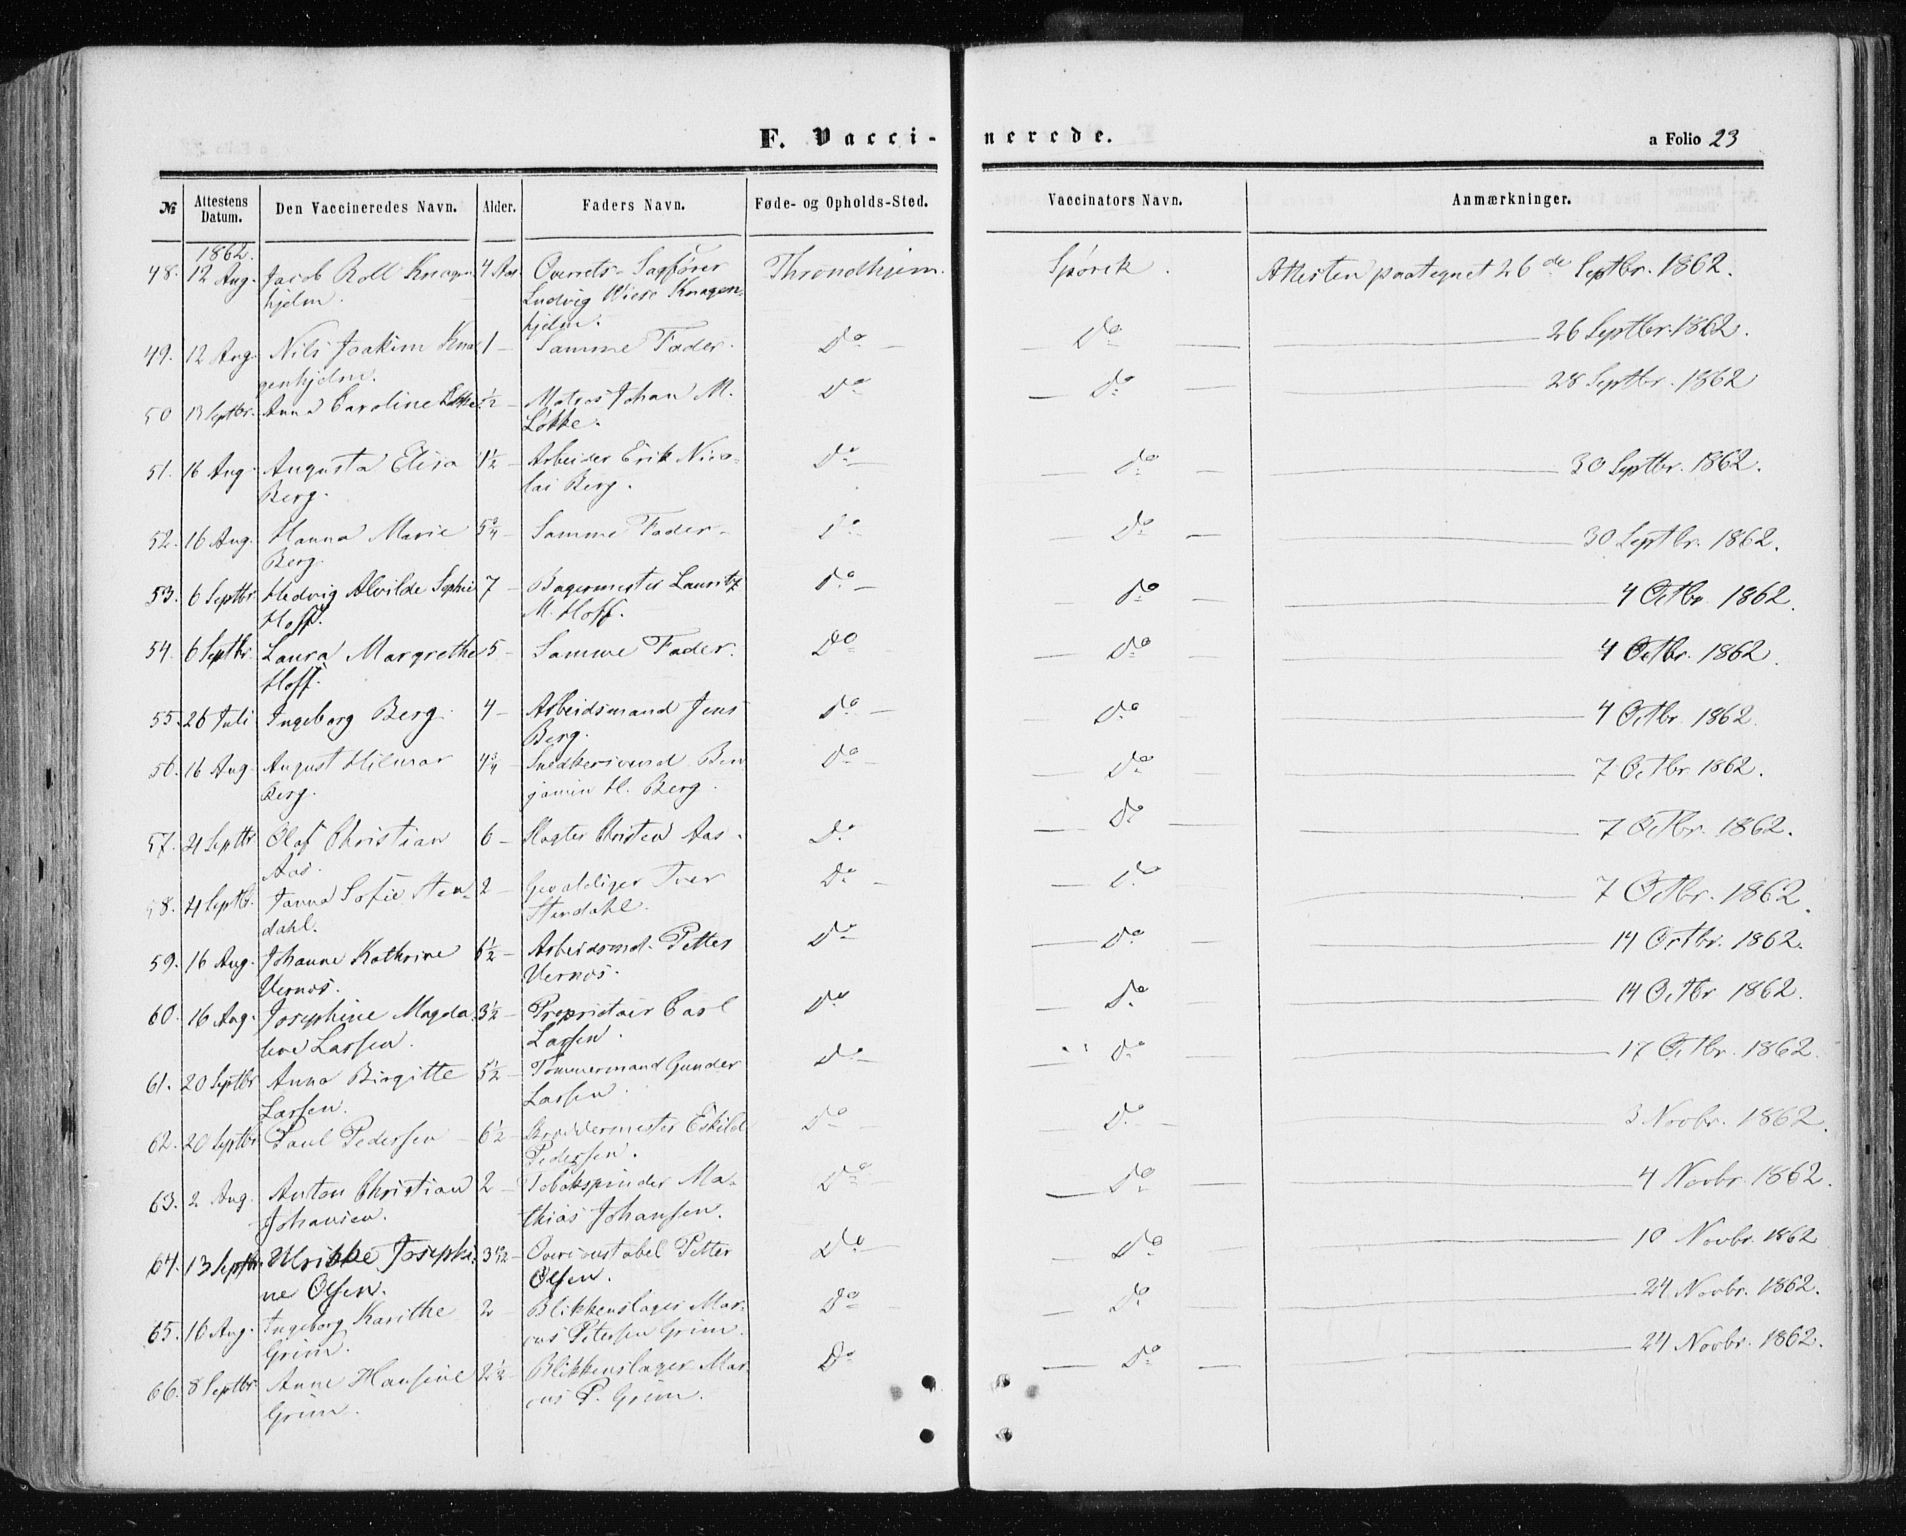 F. Vacci-nerede.
a Folio 23
№ Attestens Datum. Den Vaccineredes Navn. Alder. Faders Navn. Føde- og Opholds-Sted. Vaccinators Navn. Anmærkninger.
1862.
48. 12 Aug. Jacob Roll Knagen- 4 Aar Overrets-Sagfører Throndhjem. Spørck. Attesten paategnet 26de Septbr. 1862.
hjelm. Ludvig Wiese Knagen-
hjelm.
49. 12 Aug. Nils Joakim Kna- 1 — Samme Fader. Do — Do — 26 Septbr. 1862.
genhjelm.
50 13 Septbr. Anna Caroline Løkke 5½ — Matros Johan M. Do — Do — 28 Septbr. 1862
Løkke.
51. 16 Aug. Augusta Elisa 1½ — Arbeider Erik Nico- Do — Do — 30 Septbr. 1862.
Berg. lai Berg.
52. 16 Aug. Hanna Marie 5¾ — Samme Fader — Do — Do — 30 Septbr. 1862.
Berg.
53. 6 Septbr Hedvig Alvilde Sophie 7 — Bagermester Lauritz Do — Do — 4 Octbr. 1862.
Hoff. M. Hoff.
54. 6 Septbr. Laura Margrethe 5 — Samme Fader. Do — Do — 4 Octbr. 1862.
Hoff.
55. 26 Juli Ingeborg Berg. 4 — Arbeidsmand Jens Do — Do — 4 Octbr. 1862.
Berg.
56. 16 Aug August Hilmar 4¾ — Snedkersvend Ben Do — Do — 7 Octbr 1862.
Berg. jamin H. Berg.
57. 4 Septbr Olaf Christian 6 — Slagter Christen Aas. Do — Do — 7 Octbr. 1862.
Aas.
58. 4 Septbr. Janna Sofie Sten- 2 — Gevaldiger Iver Do — Do — 7 Octbr. 1862.
dahl. Stendahl.
59. 16 Aug. Johanne Kathrine 6½ — Arbeidsmd. Petter Do — Do — 14 Octbr. 1862.
Vernøs. Vernøs.
60. 16 Aug. Josephine Magda- 3½ — Proprietair Carl Do — Do — 14 Octbr 1862.
lene Larsen. Larsen.
61. 20 Septbr Anna Birgitte 5½ — Tømmermand Gunder Do — Do — 17 Octbr. 1862.
Larsen. Larsen.
62. 20 Septbr. Paul Pedersen — 6½ — Skreddermester Eskild Do — Do — 3 Novbr. 1862.
Pedersen.
63. 2 Aug. Anton Christian 2 — Tobakspinder Ma- Do — Do — 4 Novbr. 1862.
Johansen. thias Johansen.
64. 13 Septbr. Ulrikke Josephi- Overconstabel Petter Do — Do — 10 Novbr. 1862
ne Olsen. Olsen.
65. 16 Aug. Ingeborg Karithe 2 — Blikkenslager Mar- Do — Do — 24 Novbr. 1862.
Grim. cus Petersen Grim.
66. 8 Septbr. Anne Hansine 2½ — Blikkenslager Mar- Do — Do — 24 Novbr. 1862.
Grim. cus P. Grim.